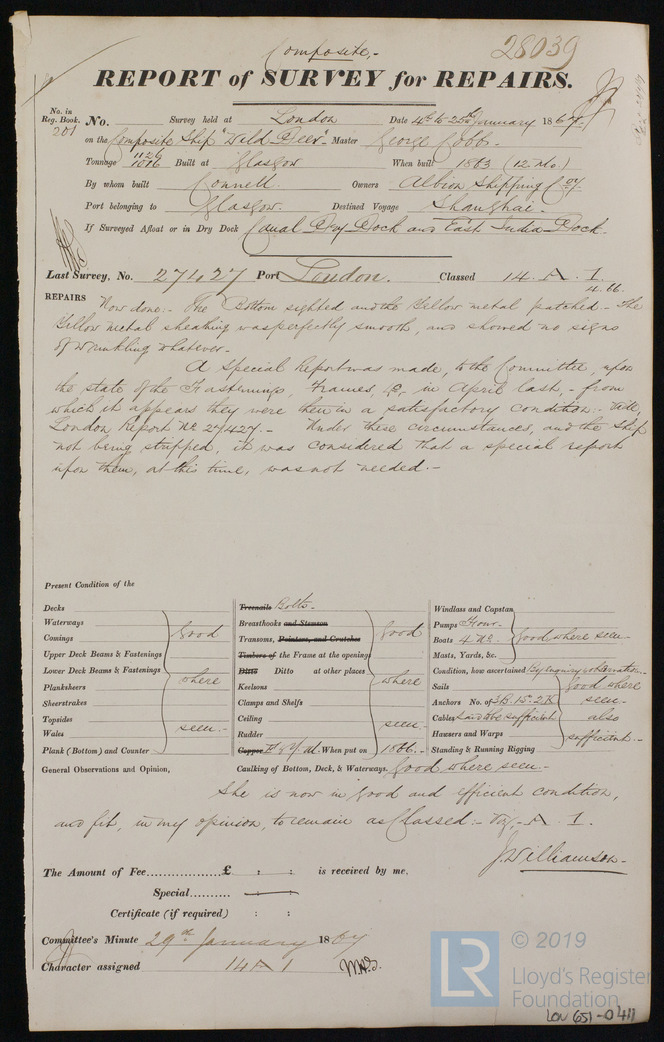 Composite.-
28039
REPORT of SURVEY for REPAIRS.
No. in Reg. Book. 201
No. Survey held at London Date 4th to 25th January 1867.
on the Composite Ship "Wild Deer" Master George Cobb.
Tonnage 1126 1016 Built at Glasgow When built 1863 (12. Mo)
By whom built Connell. Owners Albion Shipping Coy.
Port belonging to Glasgow. Destined Voyage Shanghai.
If Surveyed Afloat or in Dry Dock Canal Dry Dock and East India Dock.
Last Survey, No. 27427 Port London. Classed 14. A. 1.
4.66.
REPAIRS Now done:- The Bottom sighted and the Yellow metal patched - The
Yellow metal sheathing was perfectly smooth, and showed no signs
of wrinkling whatever.-
A Special Report was made, to the Committee, upon
the state of the Fastenings, Frames, &c, in April last, - from
which it appears they were then in a satisfactory condition. - Vide,
London Report No 27427. - Under these circumstances, and the Ship
not being stripped, it was considered that a special report
upon them, at this time, was not needed.-
Present Condition of the
Decks
Waterways
Comings
Upper Deck Beams & Fastenings
Lower Deck Beams & Fastenings
Planksheers
Sheerstrakes
Topsides
Wales
Plank (Bottom) and Counter
Good
where
seen.-
Treenails Bolts.
Breasthooks and Stemson
Transoms, Pointers, and Crutches
Timbers of the Frame at the openings
Ditto Ditto at other places
Keelsons
Clamps and Shelfs
Ceiling
Rudder
Copper Y. M. When put on 1866.-
Good
where
seen.-
Windlass and Capstan
Pumps Four.
Boats 4 No
Masts, Yards, &c.
Good where seen.
Condition, how ascertained By enquiry & observation.
Sails
Anchors No. of 3B. 1S. 2K
Cables Said to be sufficient
Hawsers and Warps
Standing & Running Rigging
Good where
seen.-
also
sufficient.-
General Observations and Opinion,
Caulking of Bottom, Deck, & Waterways. Good where seen.-
She is now in good and efficient condition,
and fit, in my opinion, to remain as Classed:- Viz,- A. 1.
J. Williamson-
The Amount of Fee............... £ : : is received by me.
Special.......... : :
Certificate (if required) : :
Committee's Minute 29th January 1867
Character assigned 14 A 1
LR
© 2019
Lloyd's Register
Foundation
LON 651-0411